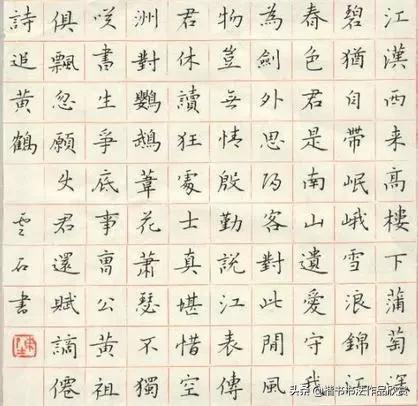 江漢西来高樓下蒲萄深
碧猶自帶岷峨雪浪錦江
春色君是南山遺愛守我
為劍外思歸客對此間風
物豈無情殷勤說江表傳
君休讀狂處士真堪惜空
洲對鸚鵡葦花蕭瑟不獨
咲書生爭底事曹公黃祖
俱飄忽願使君還賦謫僊
詩追黃鶴
雲石書
头条 @楷书书法作品欣赏